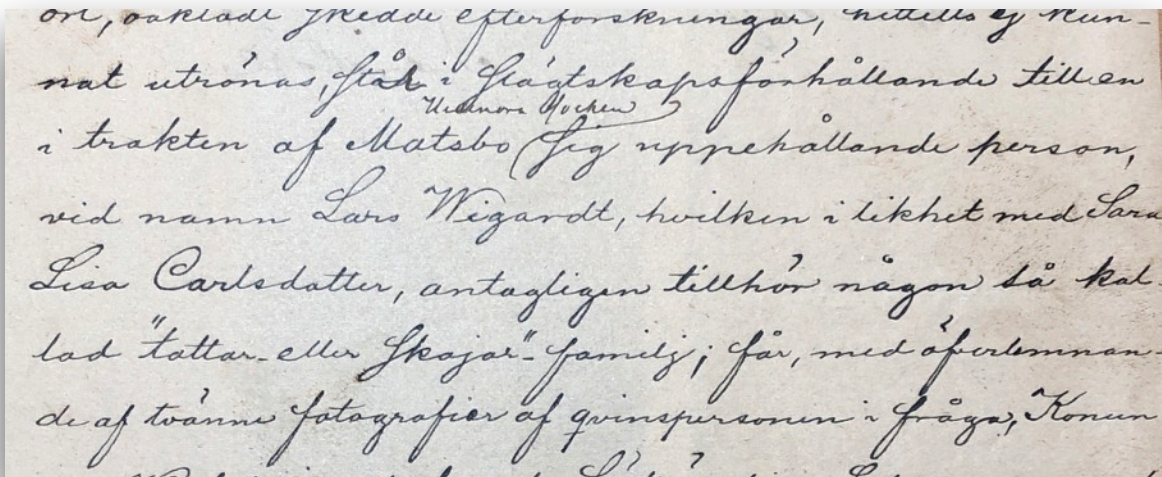 ort, oaktadt skedde efterforskningar, hittills ej kun-
nat utrönas, står i slägtskapsförhållande till en
i trakten af Matsbo sig uppehållande person,
vid namn Lars Wigardt, hvilken i likhet med Sara
Lisa Carlsdotter, antagligen tillhör någon så kal-
lad "tattar- eller skojar"-familj; får, med öfverlemnan-
de af tvänne fotografier af qvinspersonen i fråga, Konun